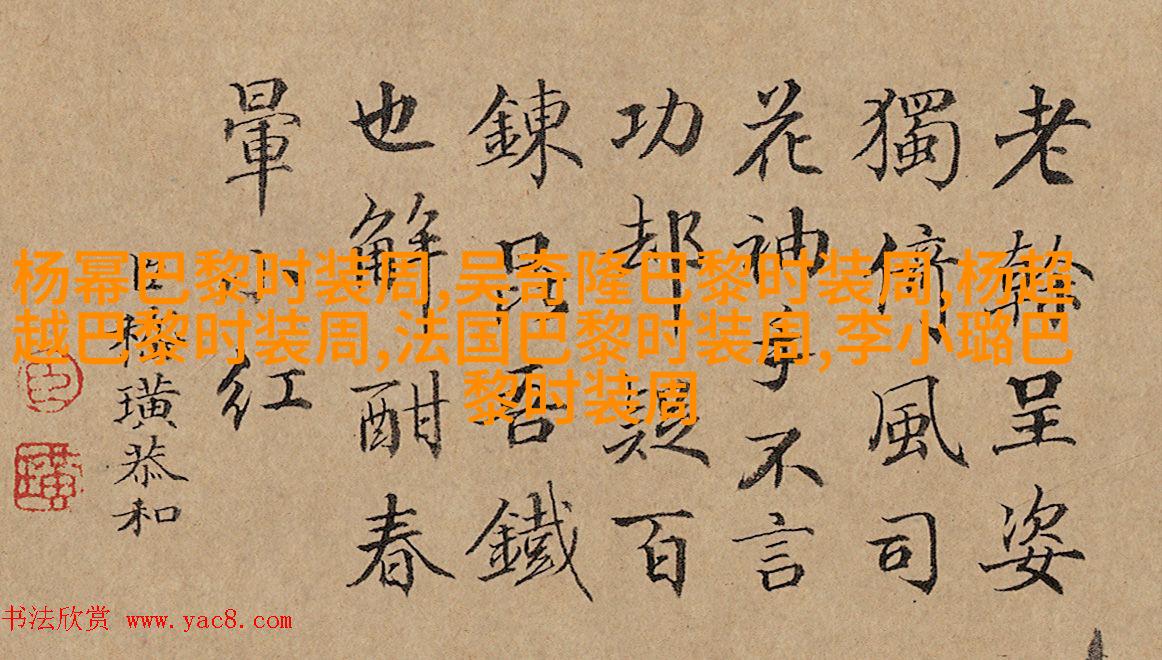 老榦呈姿
獨倚風司
花神守不言
功却疑百
鍊昆吾鐵
也解酣春
暈小紅
臣嵇璜恭和
杨幂巴黎时装周,吴奇隆巴黎时装周,杨超
越巴黎时装周,法国巴黎时装周,李小璐巴
黎时装周
书法欣赏 www.yac8.com